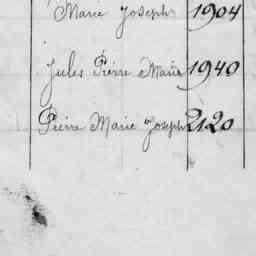 Marie Joseph 1904
Jules Pierre Marie 1940
Pierre Marie Joseph 2120